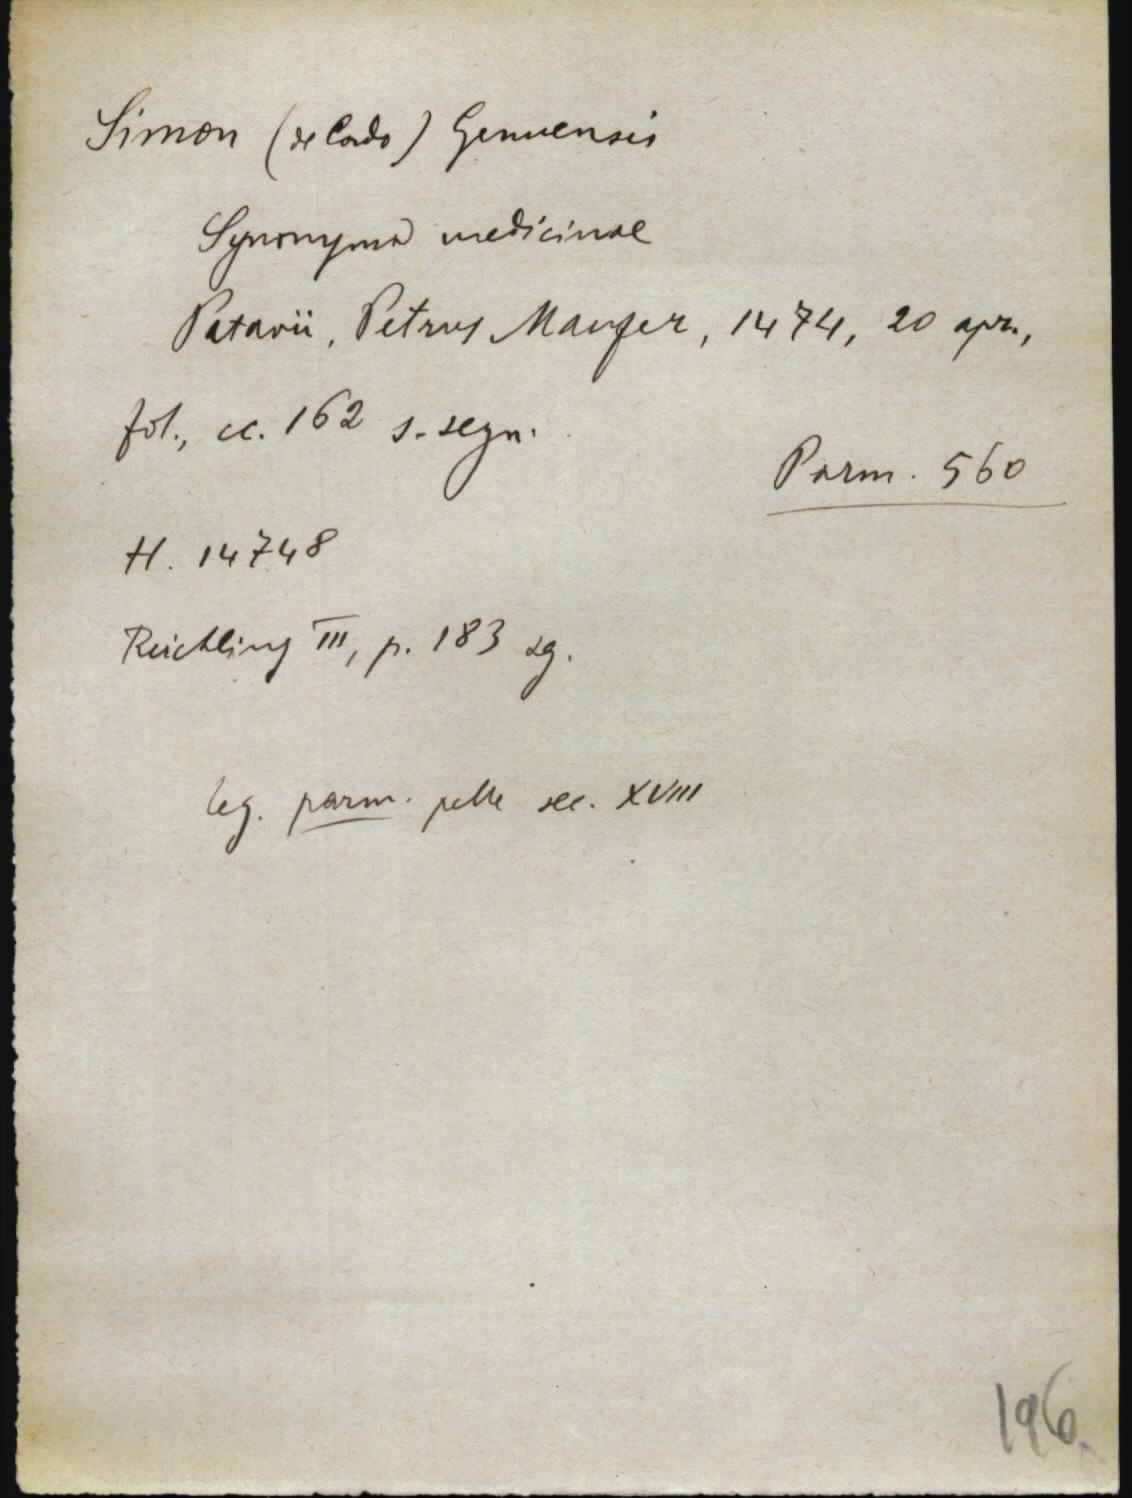 Simon (de Cordo) Genuensis
Synonyma medicinae
Patavii, Petrus Maufer, 1474, 20 apr.,
fol., cc. 162 s. segn.
Parm. 560
H. 14748
Reichling III, p. 183 sg.
leg. parm. pelle sec. XVIII
196